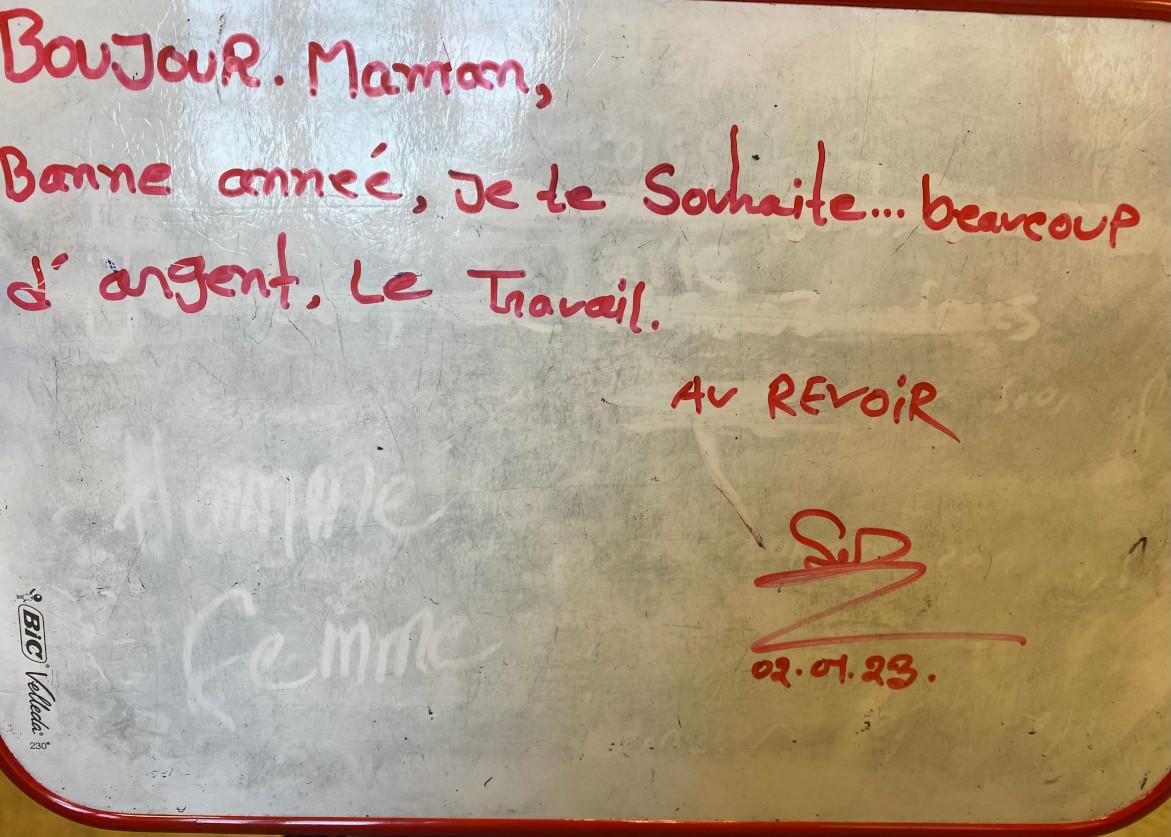 BOUJOUR. Maman,
Banne année, Je te Souhaite... beaucoup
d' argent. Le Travail.
AU REVOIR
S.D
02.01.23.
Homme
Femme
BIC Velleda
230°